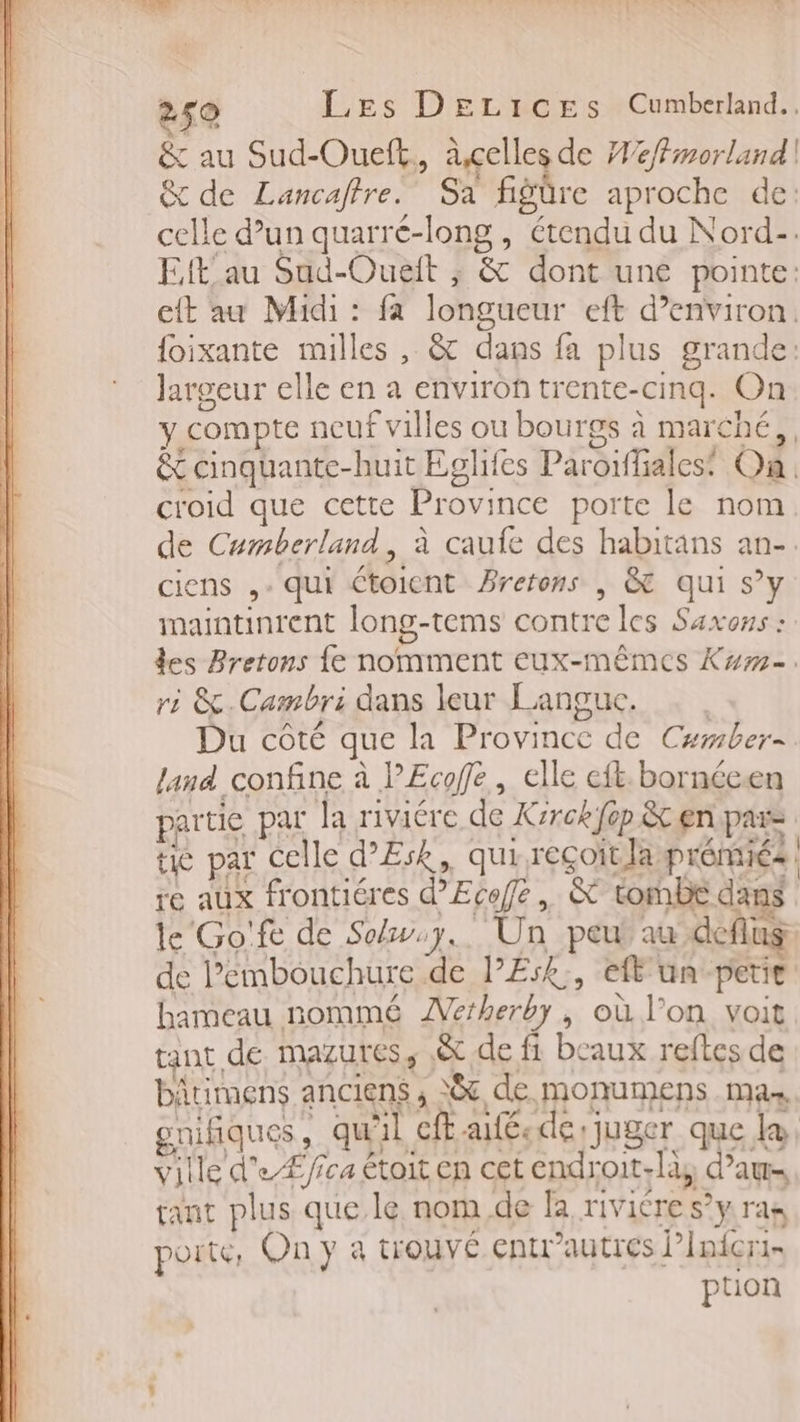 250 LES DELICES Cumberland.
& au Sud-Oueſt, à celles de Weſtmorland
& de Lancaſtre. Sa figûre aproche de
celle d'un quarré-long, étendu du Nord-
Eſt au Sud-Oueſt ; & dont une pointe
eſt au Midi : ſa longueur eſt d'environ
ſoixante milles , & dans ſa plus grande
largeur elle en a environ trente-cinq. On
y compte neuf villes ou bourgs à marché,
& cinquante-huit Egliſes Paroiſſiales. On
croid que cette Province porte le nom
de Cumberland, à cauſe des habitans an-
ciens , qui étoient Bretons , & qui s'y
maintinrent long-tems contre les Saxons :
les Bretons ſe nomment eux-mêmes Kum-
ri & Cambri dans leur Langue.
Du côté que la Province de Cumber-
land confine à l'Ecoſſe, elle eſt bornée en
partie par la riviére de Kirckſop & en par-
tie par celle d'Esk, qui reçoit la prémié-
re aux frontiéres d'Ecoſſe, & tombe dans
le Golfe de Solway. Un peu au deſſus
de l'embouchure de l'Esk, eſt un petit
hameau nommé Netherby, où l'on voit
tant de mazures, & de ſi beaux reſtes de
bâtimens anciens, & de monumens ma-
gnifiques, qu'il eſt aiſé de juger que la
ville d'Æſica étoit en cet endroit-là, d'au-
tant plus que le nom de la riviére s'y ra-
porte. On y a trouvé entr'autres l'Inſcri-
ption